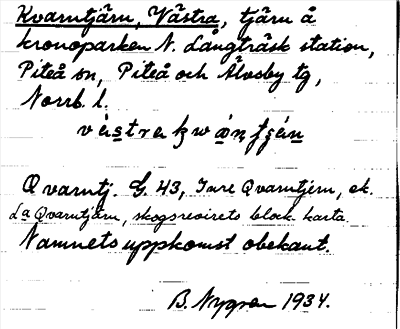 Kvarntjärn, Västra, tjärn å
kronoparken N. Långträsk station,
Piteå sn, Piteå och Älvsby tg,
Norrb. l.
västra kwa̱ṇtjän
Qvarntj. G. 43, Inre Qvarntjern, ek.
La Qvarntjärn, skogsrevirets block. karta.
Namnets uppkomst obekant.
B. Nygren 1934.